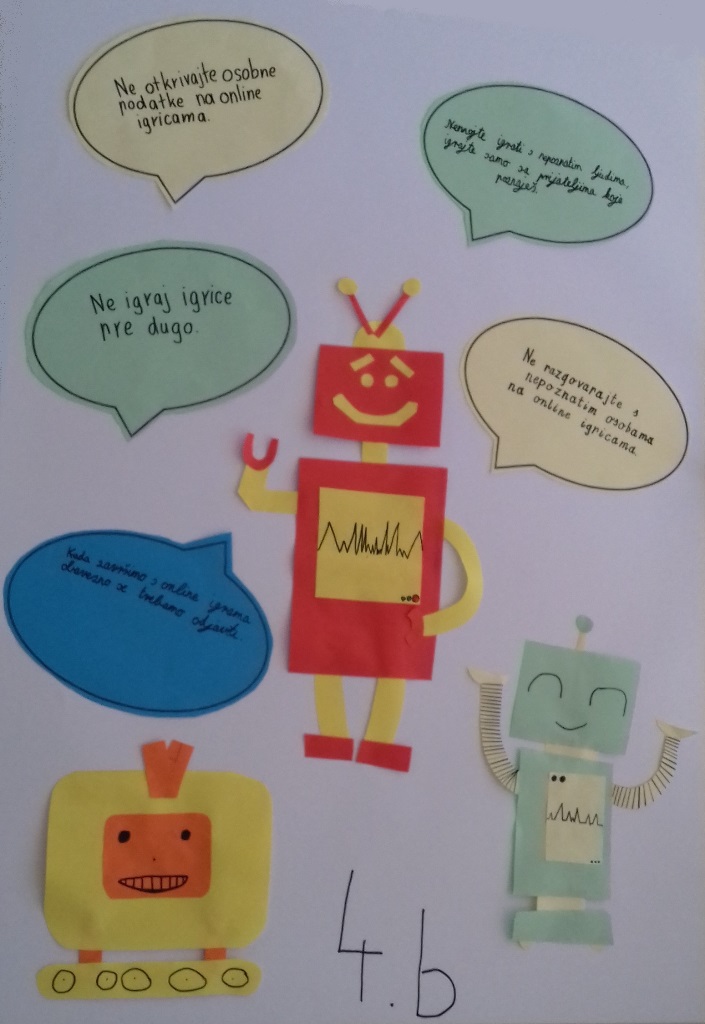 Ne otkrivajte osobne
podatke na online
igricama.
Nemojte igrati s nepoznatim ljudima,
igrajte samo sa prijateljima koje
poznaješ.
Ne igraj igrice
pre dugo.
Ne razgovarajte s
nepoznatim osobama
na online igricama.
Kada završimo s online igrama
obavezno se trebamo odjaviti.
4.b